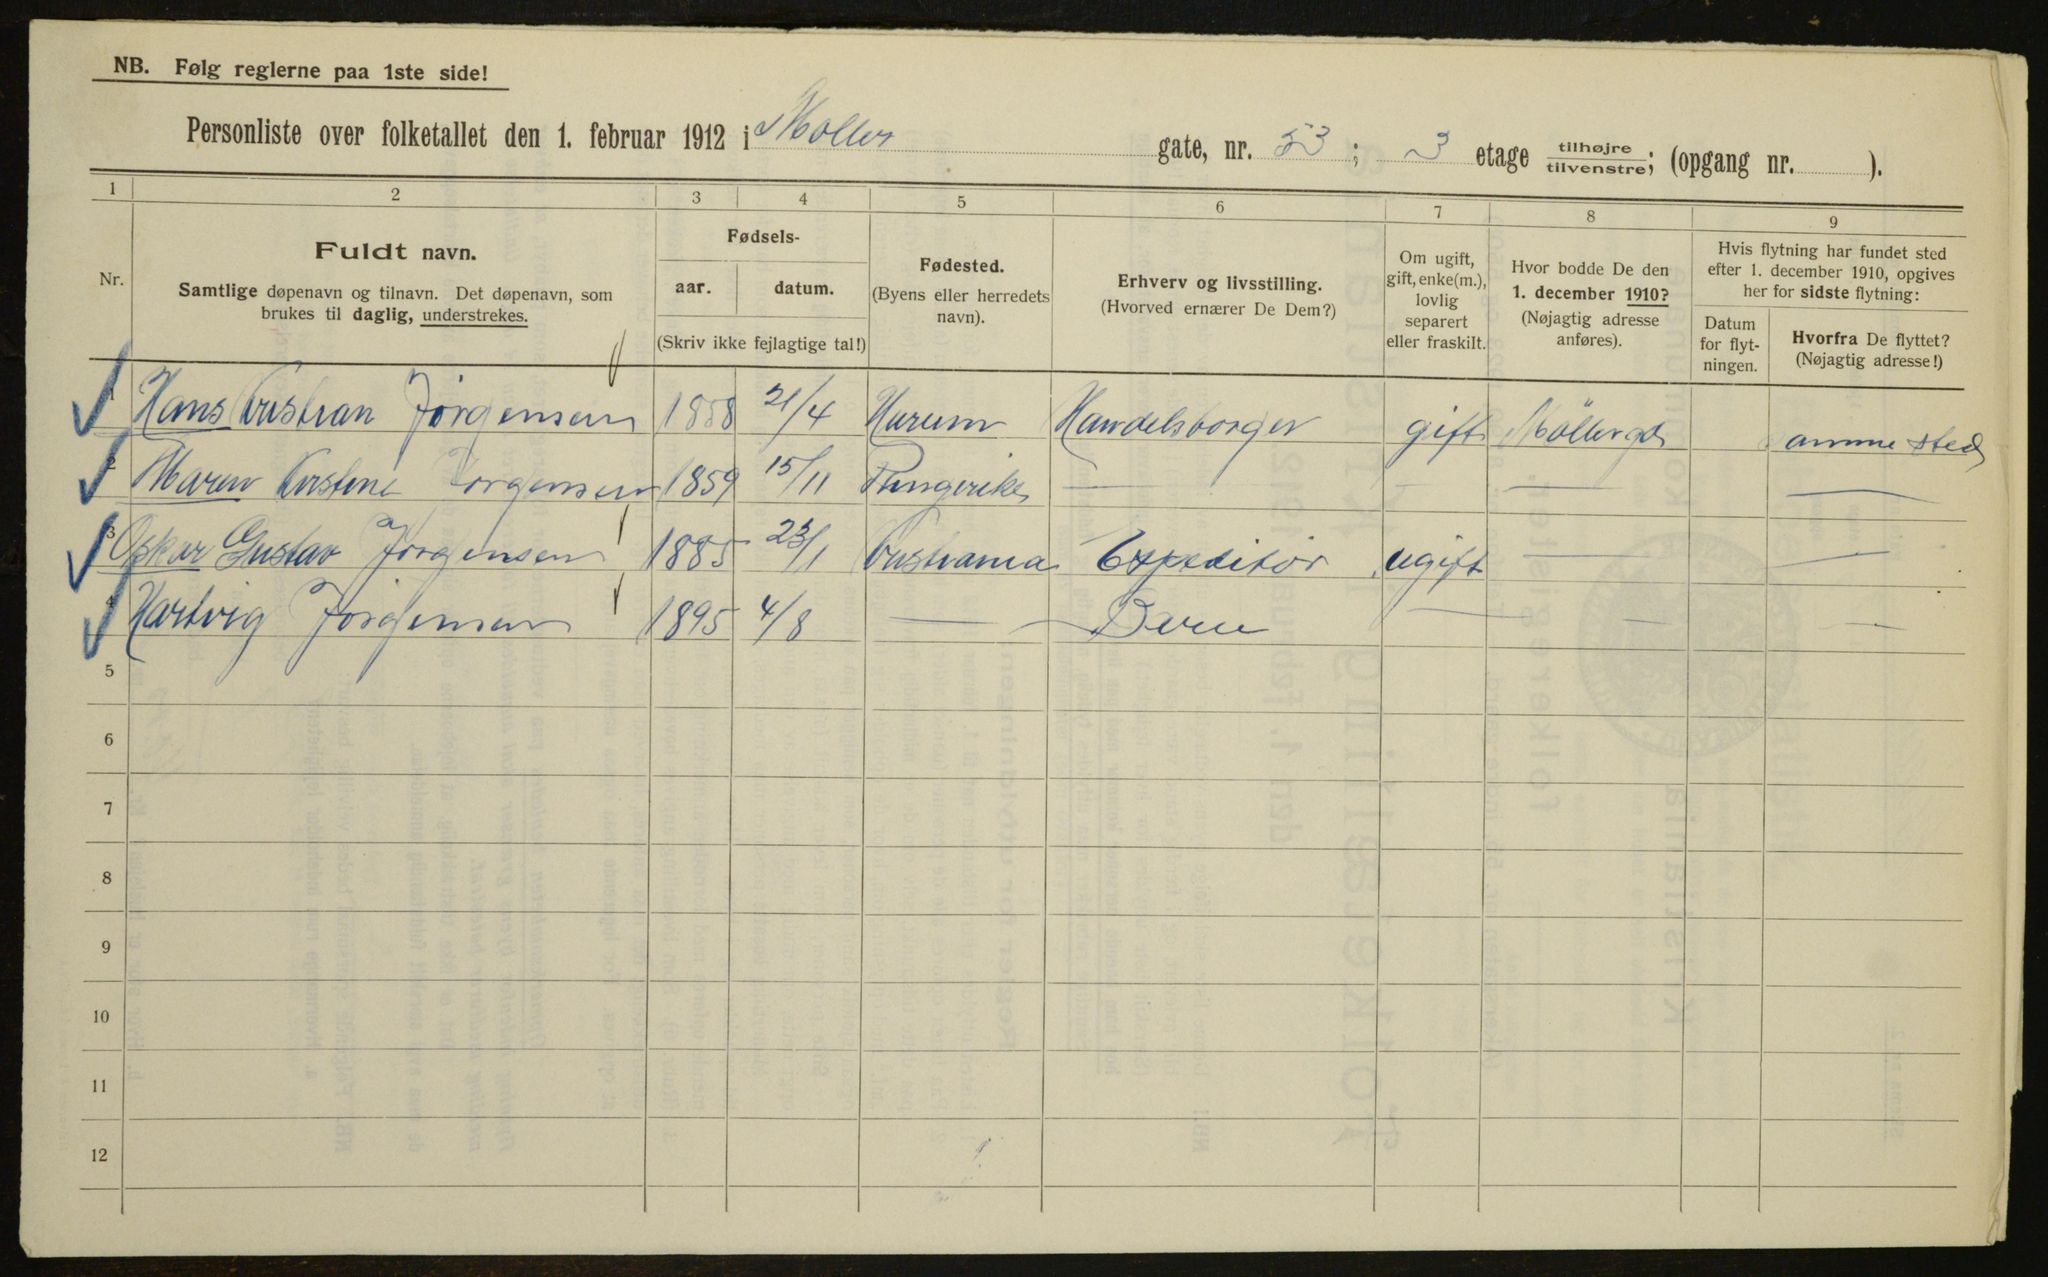 NB. Følg reglerne paa 1ste side!
Personliste over folketallet den 1. februar 1912 i Møller gate, nr. 53; 3 etage tilhøjre/tilvenstre; (opgang nr. ).
1 2 3 4 5 6 7 8 9
Nr.
Fuldt navn.
Samtlige døpenavn og tilnavn. Det døpenavn, som
brukes til daglig, understrekes.
Fødsels-
aar. datum.
(Skriv ikke fejlagtige tal!)
Fødested.
(Byens eller herredets
navn).
Erhverv og livsstilling.
(Hvorved ernærer De Dem?)
Om ugift,
gift, enke(m.),
lovlig
separert
eller fraskilt.
Hvor bodde De den
1. december 1910?
(Nøjagtig adresse
anføres).
Hvis flytning har fundet sted
efter 1. december 1910, opgives
her for sidste flytning:
Datum
for flyt-
ningen.
Hvorfra De flyttet?
(Nøjagtig adresse!)
1 Hans Cristian Jørgensen 1858 21/4 Hurum Handelsborger gift Möllergd samme sted
2 Maren Kirstine Jorgensen 1859 15/11 Ringerike — — — —
3 Oskar Gustav Jørgensen 1885 23/1 Cristiania Expeditör ugift — —
4 Hartvig Jörgensen 1895 4/8 — Barn — — —
5
6
7
8
9
10
11
12